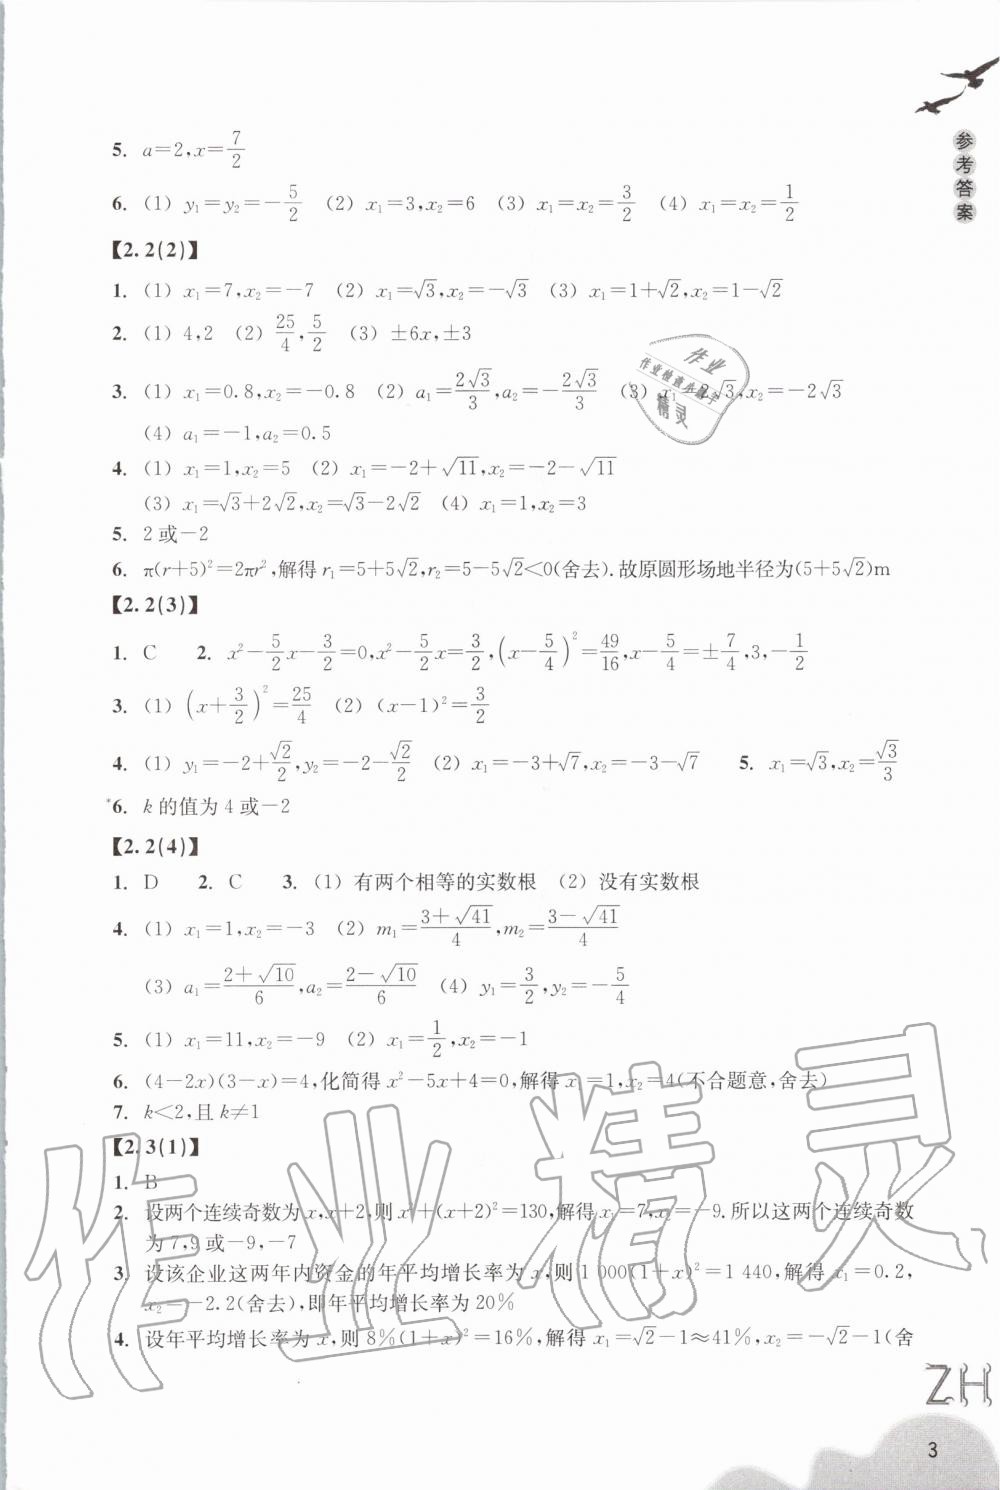 参考答案
5. a=2,x=7/2
6. (1) y₁=y₂=-5/2 (2) x₁=3,x₂=6 (3) x₁=x₂=3/2 (4) x₁=x₂=1/2
【2.2(2)】
1. (1) x₁=7,x₂=-7 (2) x₁=√3,x₂=-√3 (3) x₁=1+√2,x₂=1-√2
2. (1) 4,2 (2) 25/4,5/2 (3) ±6x,±3
3. (1) x₁=0.8,x₂=-0.8 (2) a₁=2√3/3,a₂=-2√3/3 (3) x₁=2√3,x₂=-2√3
(4) a₁=-1,a₂=0.5
4. (1) x₁=1,x₂=5 (2) x₁=-2+√11,x₂=-2-√11
(3) x₁=√3+2√2,x₂=√3-2√2 (4) x₁=1,x₂=3
5. 2或-2
6. π(r+5)²=2πr²,解得r₁=5+5√2,r₂=5-5√2<0(舍去).故原圆形场地半径为(5+5√2)m
【2.2(3)】
1. C 2. x²-5/2x-3/2=0,x²-5/2x=3/2,(x-5/4)²=49/16,x-5/4=±7/4,3,-1/2
3. (1) (x+3/2)²=25/4 (2) (x-1)²=3/2
4. (1) y₁=-2+√2/2,y₂=-2-√2/2 (2) x₁=-3+√7,x₂=-3-√7 5. x₁=√3,x₂=√3/3
*6. k的值为4或-2
【2.2(4)】
1. D 2. C 3. (1) 有两个相等的实数根 (2) 没有实数根
4. (1) x₁=1,x₂=-3 (2) m₁=(3+√41)/4,m₂=(3-√41)/4
(3) a₁=(2+√10)/6,a₂=(2-√10)/6 (4) y₁=3/2,y₂=-5/4
5. (1) x₁=11,x₂=-9 (2) x₁=1/2,x₂=-1
6. (4-2x)(3-x)=4,化简得x²-5x+4=0,解得x₁=1,x₂=4(不合题意,舍去)
7. k<2,且k≠1
【2.3(1)】
1. B
2. 设两个连续奇数为x,x+2,则x²+(x+2)²=130,解得x₁=7,x₂=-9.所以这两个连续奇数
为7,9或-9,-7
3. 设该企业这两年内资金的年平均增长率为x,则1 000(1+x)²=1 440,解得x₁=0.2,
x₂=-2.2(舍去),即年平均增长率为20%
4. 设年平均增长率为x,则8%(1+x)²=16%,解得x₁=√2-1≈41%,x₂=-√2-1(舍
作业精灵
ZH
3